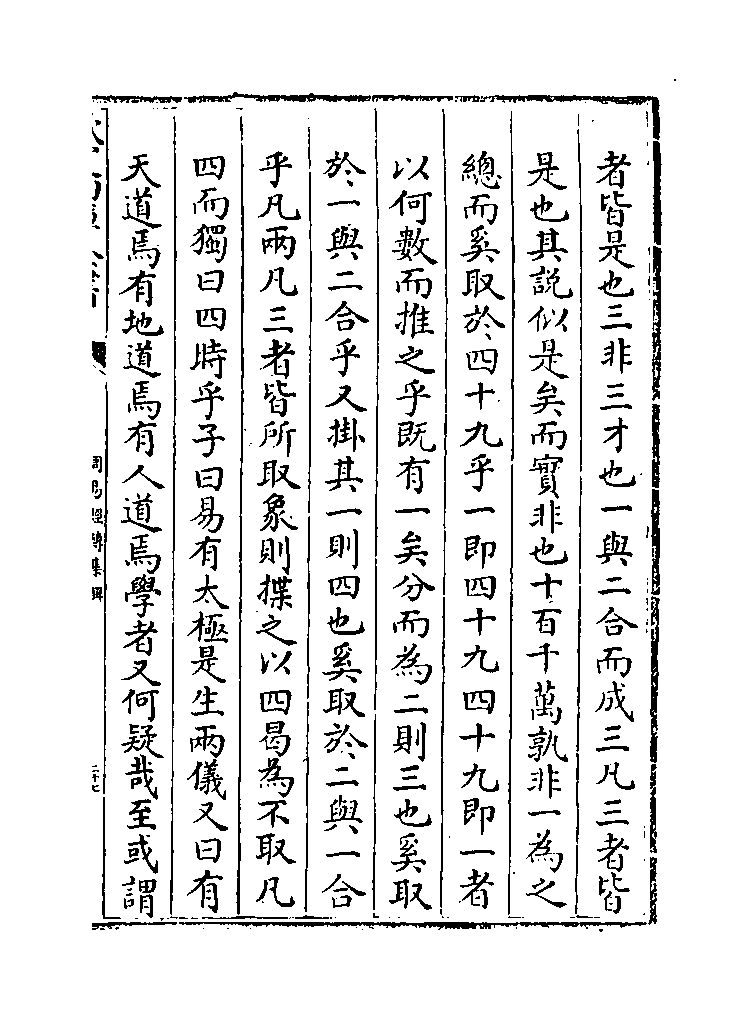 者皆是也三非三才也一與二合而成三凡三者皆
是也其説似是矣而實非也十百千萬孰非一為之
總而奚取於四十九乎一即四十九四十九即一者
以何數而推之乎既有一矣分而為二則三也奚取
於一與二合乎又掛其一則四也奚取於二與一合
乎凡兩凡三者皆所取象則揲之以四曷為不取凡
四而獨曰四時乎子曰易有太極是生兩儀又曰有
天道焉有地道焉有人道焉學者又何疑哉至或謂
周易經傳集解